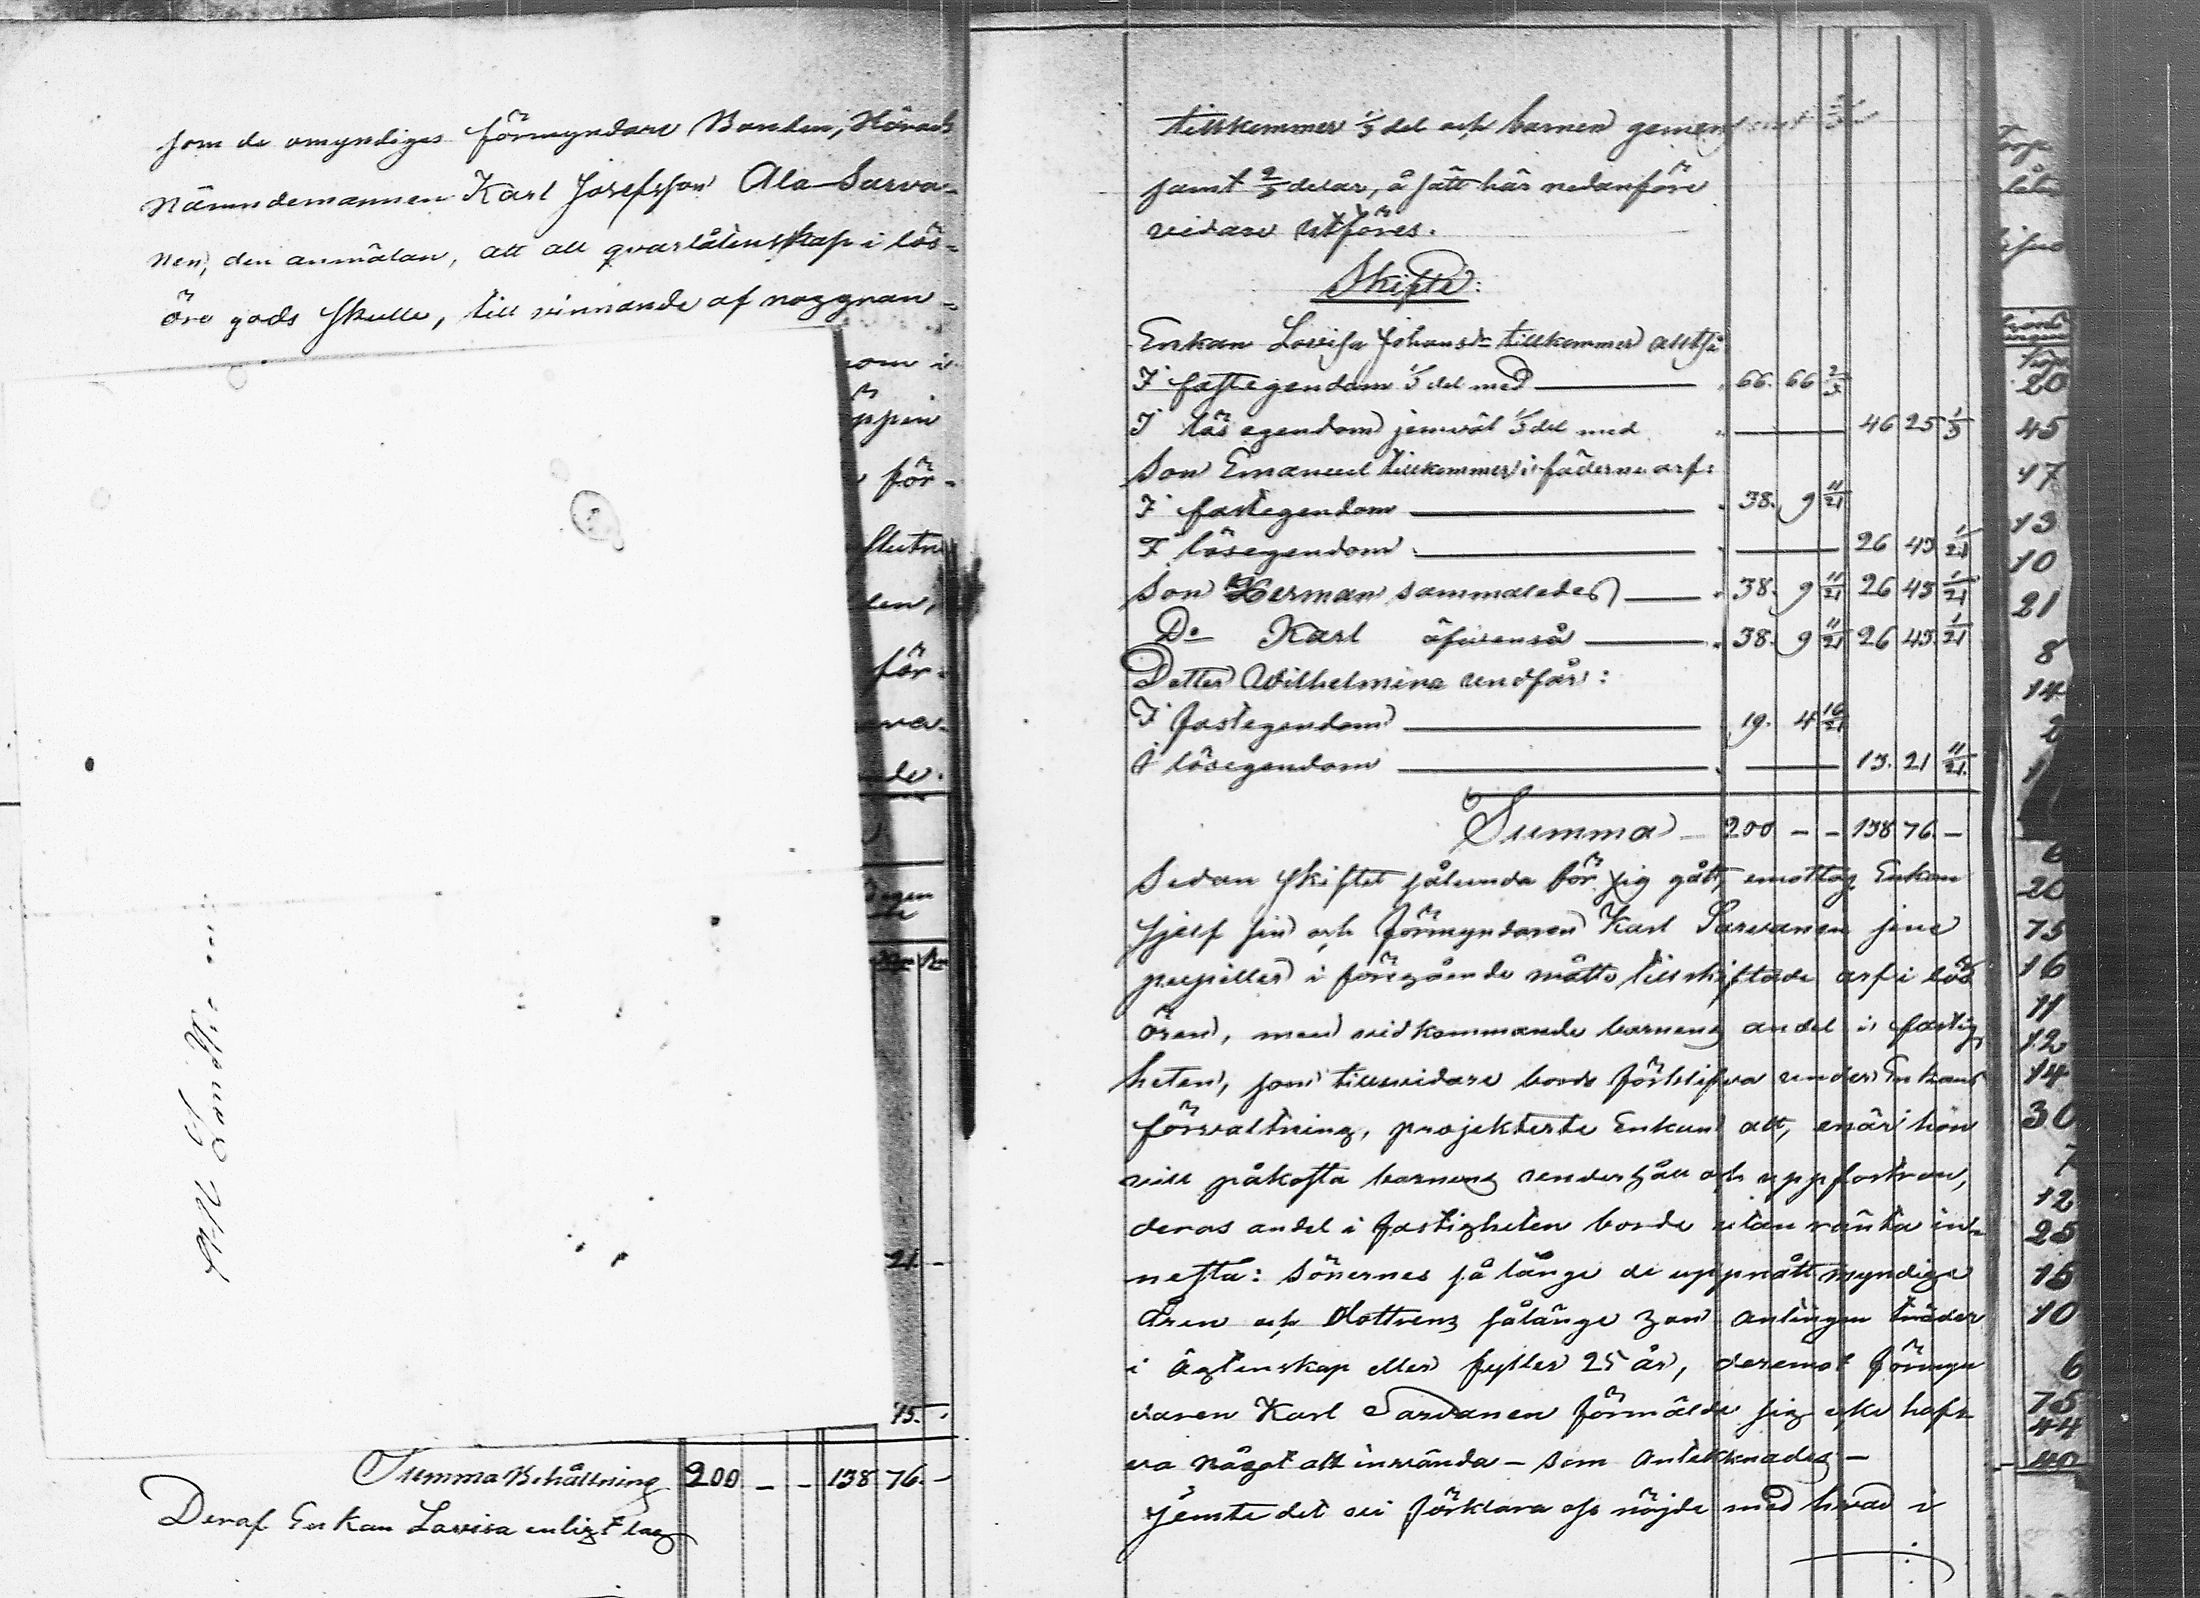 som de omyndiges förmyndare Bonden, Härads
Nämndemannen Karl Josefsson Ala-Sarva-
nen, den anmälan, att all qvarlåtenskap i lös-
öre gods skulle, till vinnande af noggran-
för-
för-
21 -
75. -
Summa Behållning 200 - - 138 76 -
Deraf Enkan Lovisa enligt lag
tillkommer 1/3 del och barnen gemen
samt 2/3 delar, å sätt här nedanföre
vidare utföres.
Skifte:
Enkan Lovisa Johansdr tillkommer alltså
I fastegendom 1/3 del med 66. 66 2/3
I lösegendom jemväl 1/3 del med 46 25 1/3
Son Emanuel tillkommer i fäderne arf:
I fastegendom 38. 9 11/21
I lösegendom 26 43 1/21
Son Herman sammaledes 38. 9 11/21 26 43 1/21
Do Karl äfvenså 38. 9 11/21 26 43 1/21
Dotter Wilhelmina undfår:
I fastegendom 19. 4 16/21
I lösegendom 13. 21 11/21
Summa 200 - - 138 76 -
Sedan skiftet sålunda för sig gått, emottog Enkan
sjelf sin och förmyndaren Karl Sarvanen sine
pupiller i föregående måtto tillskiftade arf i lös
ören, men vidkommande barnens andel i fastig
heten, som tillsvidare borde förblifva under Enkans
förvaltning, projekterte Enkan att, enär hon
vill påkosta barnens underhåll och uppfostran,
deras andel i fastigheten borde utan ränta in-
nesta: Sönernes så länge de uppnått myndige
åren och Dottrens sålänge hon antingen träder
i ägtenskap eller fyller 25 år, deremot förmyn
daren Karl Sarvanen förmälde sig icke haf-
va något att invända - som antecknades -
Jemte det vi förklara oss nöjde med hvad i
20
45
17
13
10
21
8
14
2
6
20
75
16
11
12
14
30
7
12
25
15
10
6
75
44
40